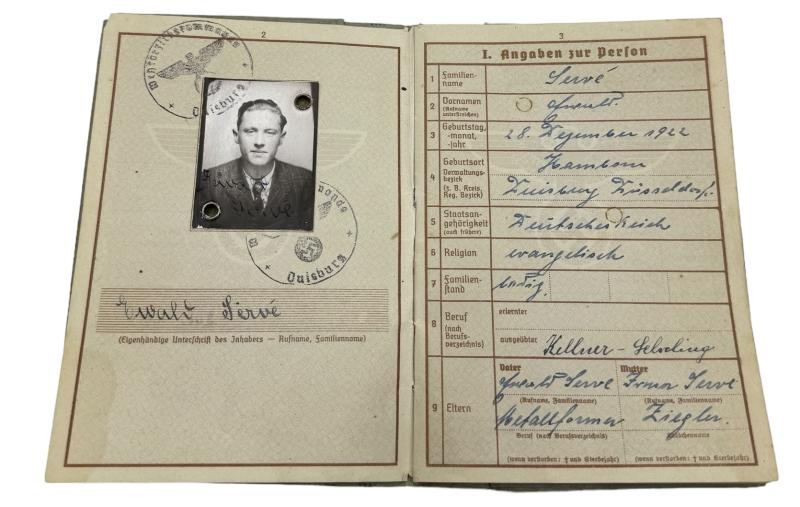 2
Wehrbezirkskommando
Duisburg
Ewald
Servé
Duisburg
Ewald Servé
(Eigenhändige Unterschrift des Inhabers — Rufname, Familienname)
3
I. Angaben zur Person
1 Familien-
name
Servé
2 Vornamen
(Rufname
unterstreichen)
Ewald.
3 Geburtstag,
-monat,
-jahr
28. Dezember 1922
4 Geburtsort
Verwaltungs-
bezirk
(z. B. Kreis,
Reg. Bezirk)
Hamborn
Duisburg Düsseldorf.
5 Staatsan-
gehörigkeit
(auch frühere)
Deutsches Reich
6 Religion
evangelisch
7 Familien-
stand
ledig.
8 Beruf
(nach
Berufs-
verzeichnis)
erlernter
ausgeübter
Kellner-
9 Eltern
Vater
Mutter
Ewald Servé
Irma Servé
(Rufname, Familienname)
(Rufname, Familienname)
Metallformer
Ziegler.
Beruf (nach Berufsverzeichnis)
Mädchenname
(wenn verstorben: † und Sterbejahr)
(wenn verstorben: † und Sterbejahr)